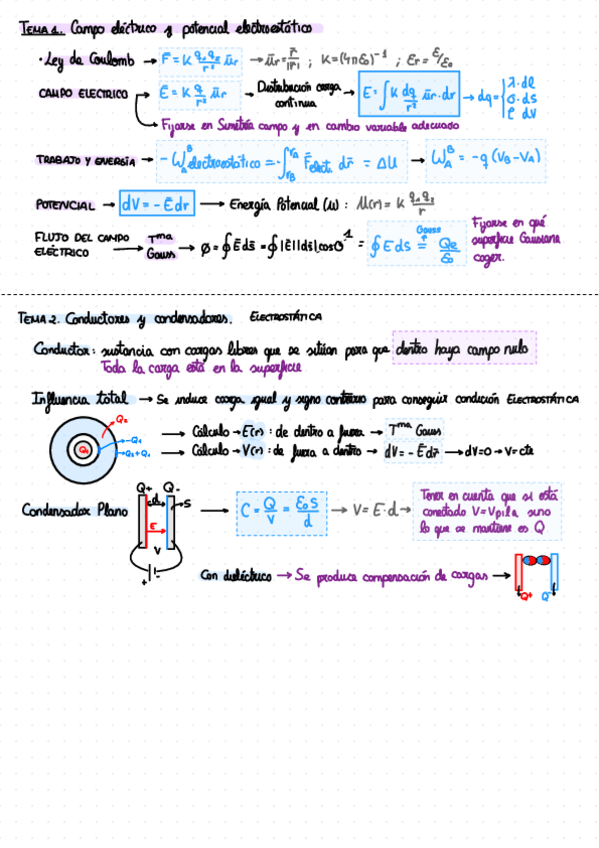 TEMA 1. Campo eléctrico y potencial electrostático
· Ley de Coulomb → F̄ = K q₁q₂/r² ūr → ūr = r̄/|r̄| ; K=(4πε₀)⁻¹ ; εr = ε/ε₀
CAMPO ELECTRICO → Ē = K q/r² ūr → Distribución carga continua → E = ∫ K dq/r² ūr·dr → dq = { λ·dl σ·ds ρ·dV
→ Fijarse en Simetría campo y en cambio variable adecuado
TRABAJO Y ENERGÍA → -W_A^B electroestático = -∫_{r_B}^{r_A} F̄elect. dr̄ = ΔU → W_A^B = -q (V_B - V_A)
POTENCIAL → dV = -Ēdr → Energía Potencial (U) : U(r) = K q₁q₂/r
FLUJO DEL CAMPO ELÉCTRICO → Tma Gauss → Ø = ∮ Ē ds̄ = ∮ |Ē||ds̄|cosθ 1 = ∮ E ds = Gauss Qe/ε₀
Fijarse en qué superficie Gausiana coger.
TEMA 2. Conductores y condensadores. ELECTROSTÁTICA
Conductor : sustancia con cargas libres que se sitúan para que dentro haya campo nulo
Toda la carga está en la superficie
Influencia total → Se induce carga igual y signo contrario para conseguir condición ELECTROSTÁTICA
Q₂
Q₁
-Q₁
Q₂+Q₁
→ Cálculo → E(r) : de dentro a fuera → Tma Gauss
→ Cálculo → V(r) : de fuera a dentro → dV = - Ēdr̄ → dV=0 → V=cte
Condensador Plano
Q+ Q-
d
S
E
V
+ -
→ C = Q/V = ε₀S/d → V = E·d → Tener en cuenta que si está conectado V = Vpila sino lo que se mantiene es Q
Con dieléctrico → Se produce compensación de cargas →
Q+ Q-